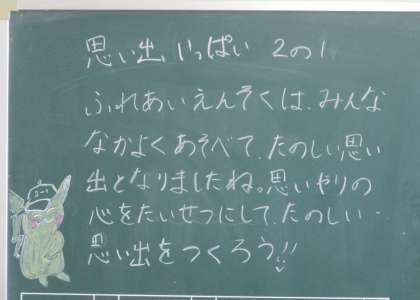 思い出いっぱい 2の1
ふれあいえんそくは、みんな
なかよくあそべて、たのしい思い
出となりましたね。思いやりの
心をたいせつにして、たのしい
思い出をつくろう!!
2-1